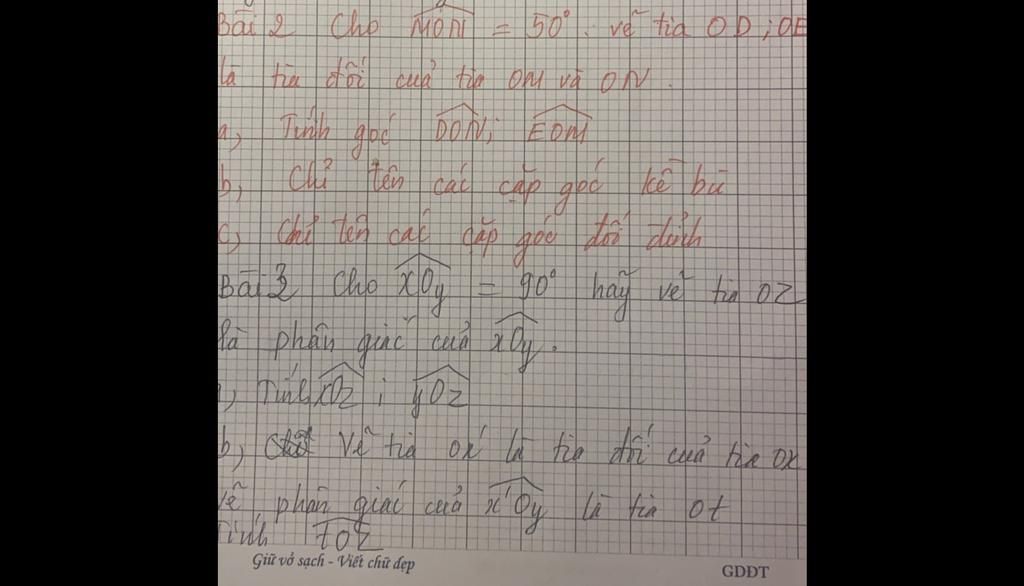 Bài 2 Cho MON = 50°. vẽ tia OD ; OE
là tia đối cuả tia OM và ON.
a, Tính goć DON; EOM
b, Chỉ tên các cặp goć kề bù
c, Chỉ tên các cặp goć đối đỉnh
Bài 3 Cho xOy = 90° hãy vẽ tia OZ
là phân giác cuả xOy.
a, Tính xOz ; yOz
b, Vẽ tia ox' là tia đối cuả tia ox
vẽ phân giác cuả x'Oy là tia ot
Tính tOz
Giữ vở sạch - Viết chữ đẹp
GDĐT